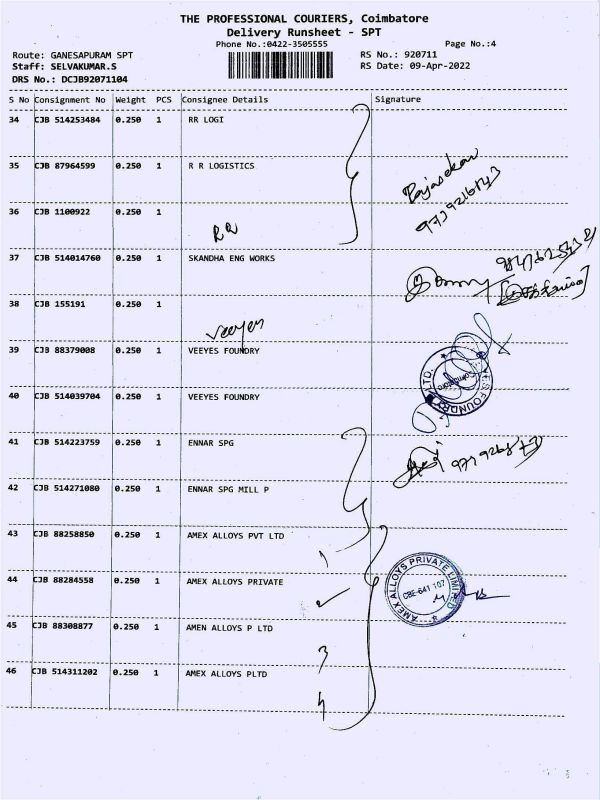 THE PROFESSIONAL COURIERS, Coimbatore
Delivery Runsheet - SPT
Phone No.:0422-3505555
Page No.:4
Route: GANESAPURAM SPT
RS No.: 920711
Staff: SELVAKUMAR.S
RS Date: 09-Apr-2022
DRS No.: DCJB92071104
S No Consignment No Weight PCS Consignee Details Signature
34 CJB 514253484 0.250 1 RR LOGI
35 CJB 87964599 0.250 1 R R LOGISTICS
Rajasekar
36 CJB 1100922 0.250 1
RR
37 CJB 514014760 0.250 1 SKANDHA ENG WORKS
38 CJB 155191 0.250 1
Veeyes
39 CJB 88379008 0.250 1 VEEYES FOUNDRY
40 CJB 514039704 0.250 1 VEEYES FOUNDRY
41 CJB 514223759 0.250 1 ENNAR SPG
42 CJB 514271080 0.250 1 ENNAR SPG MILL P
43 CJB 88258850 0.250 1 AMEX ALLOYS PVT LTD
1
44 CJB 88284558 0.250 1 AMEX ALLOYS PRIVATE
AMEX ALLOYS PRIVATE LIMITED
CBE-641 107
45 CJB 88308877 0.250 1 AMEN ALLOYS P LTD
3
46 CJB 514311202 0.250 1 AMEX ALLOYS PLTD
4